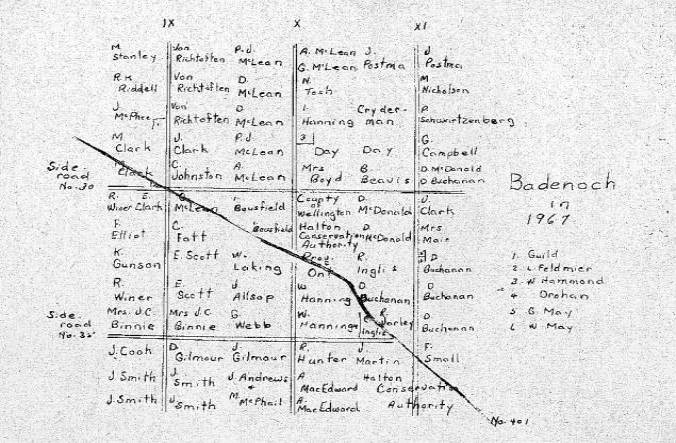 IX X XI
M. Stanley Von Richtoften P.J. McLean A. McLean J. Postma J Postma
G. McLean
R.K Riddell Von Richtoften D. McLean W. Tosh M Nicholson
J McPhee Von Richtoften D. McLean I. Hanning Cryderman P. Schwirtzenberg
M Clark J. Clark P.J McLean 3 Day Day G. Campbell
Side road No. 30
M. Clark C. Johnston A. McLean Mrs Boyd B. Beavis D. McDonald
D Buchanan
R. Winer E. Clark McLean Bousfield County of Wellington D. McDonald J. Clark
F. Elliot C. Fatt Bousfield Halton Conservation Authority D. McDonald Mrs Moir
K. Gunson E. Scott W. Laking Prov. Ont R. Inglis D Buchanan
R. Winer E. Scott J Allsop W Hanning D Buchanan D Buchanan
Side road No. 35
Mrs. J.C. Binnie Mrs J.C Binnie G. Webb W. Hanning Inglis R. Varley D. Buchanan
J. Cook D. Gilmour J. Gilmour R. Hunter J. Martin F. Small
J. Smith J. Smith J. Andrews A MacEdward Halton Conservation Authority
J. Smith J. Smith M McPhail A. MacEdward
No. 401
Badenoch
in
1967
1. Guild
2 L. Feldmier
3. W Hammond
4 Orohan
5 G. May
6 W May